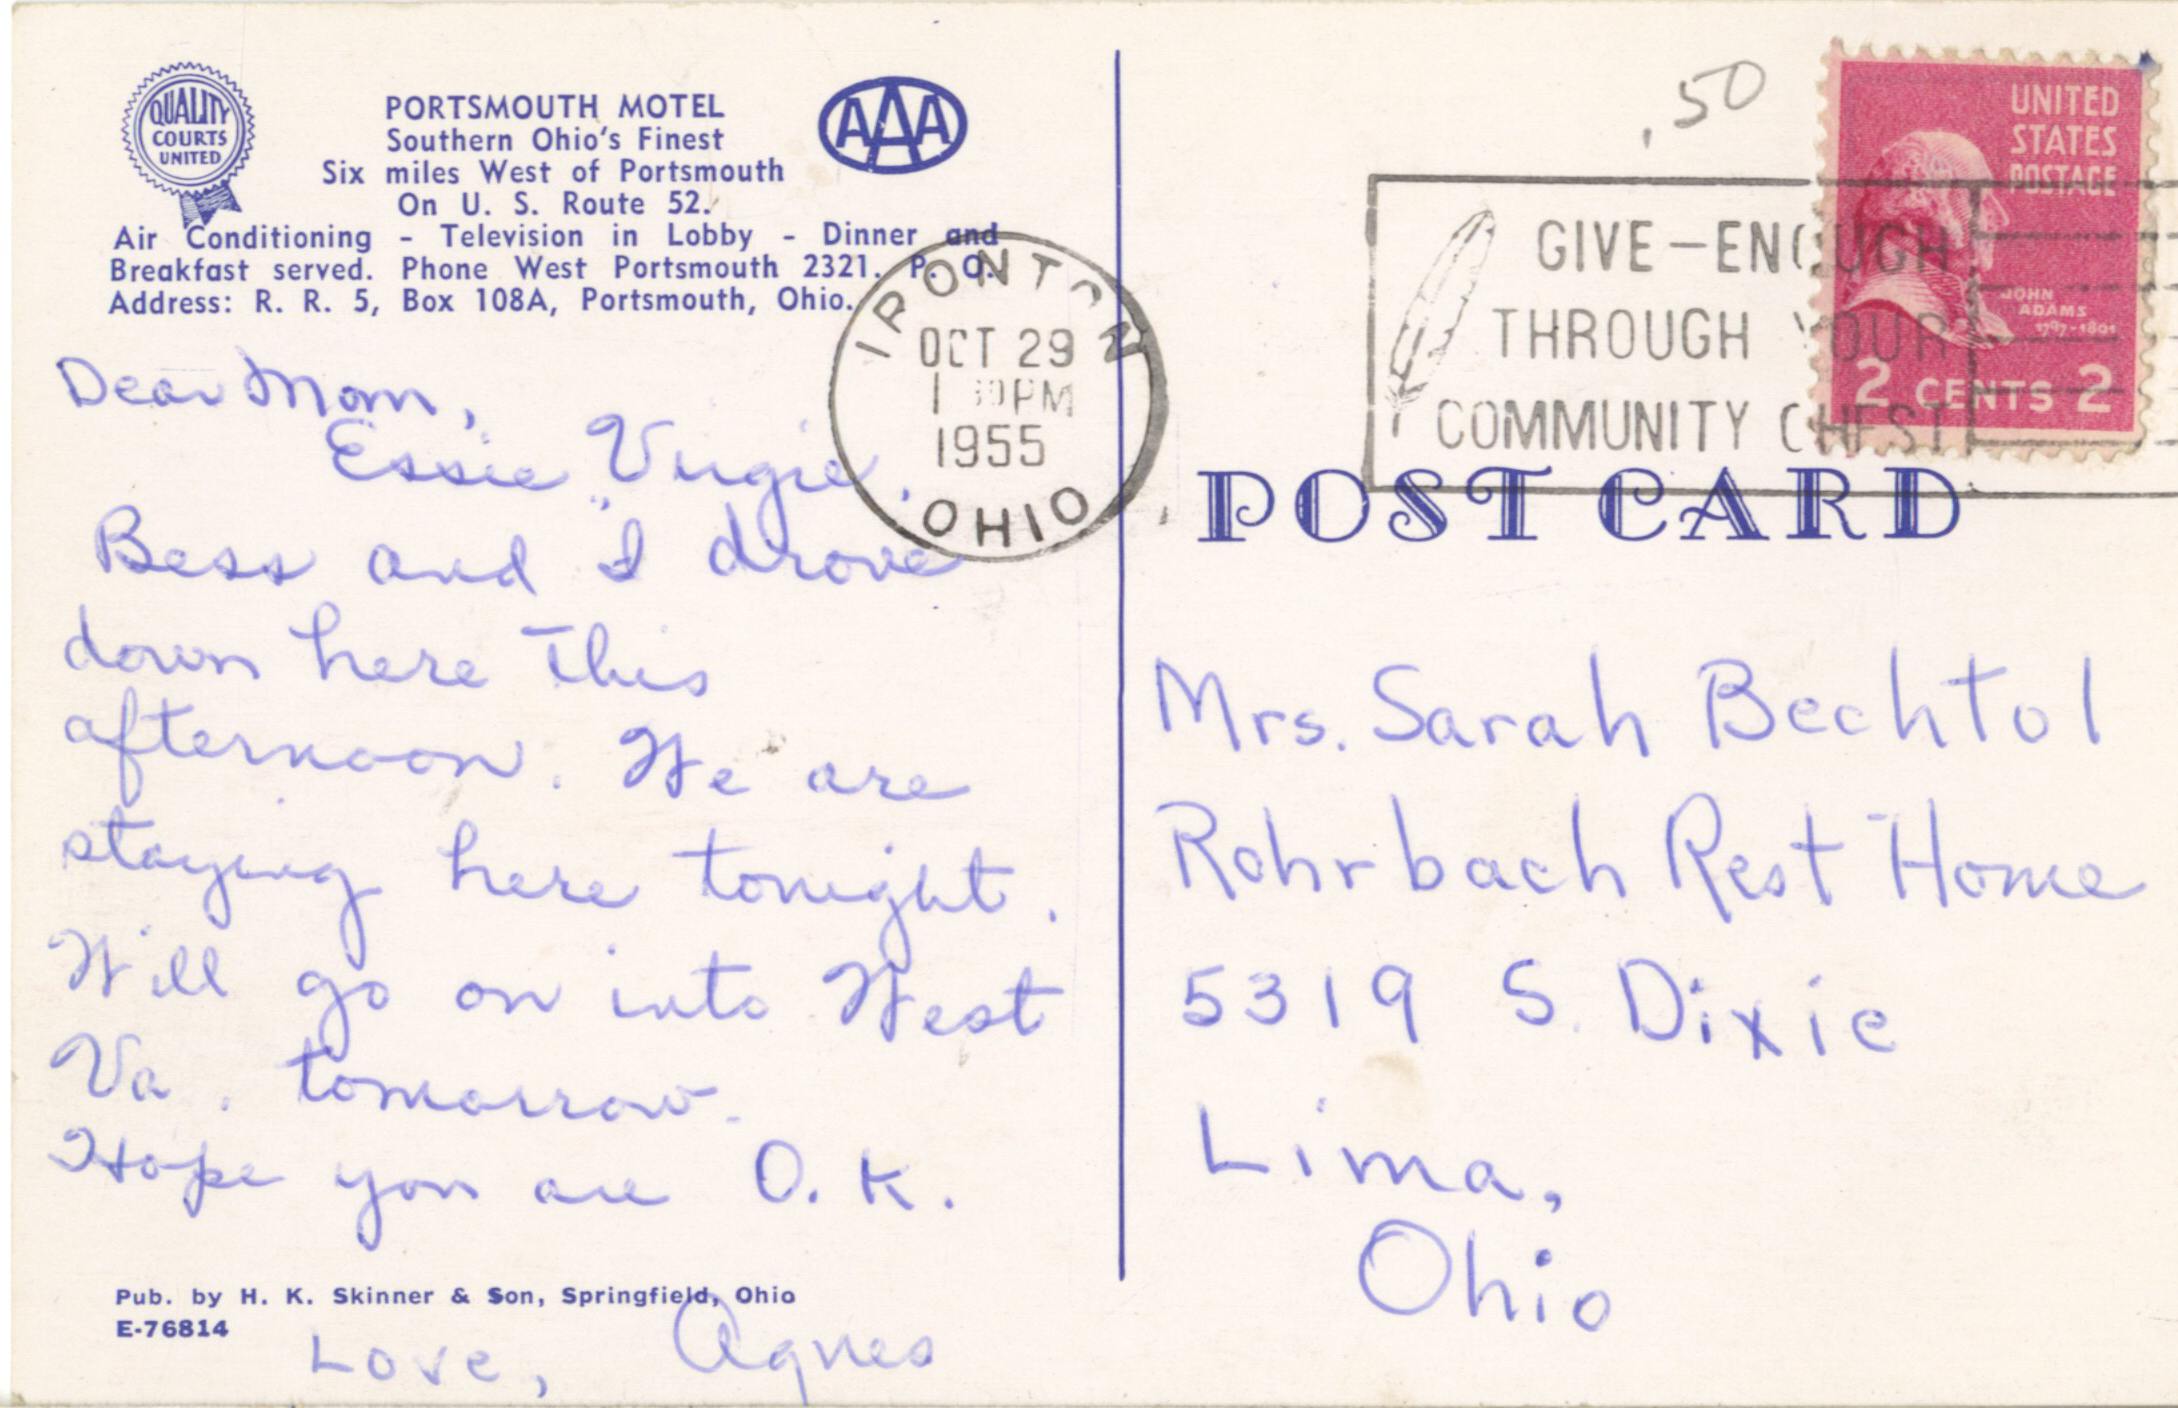 QUALITY
COURTS
UNITED
PORTSMOUTH MOTEL
Southern Ohio's Finest
Six miles West of Portsmouth
On U. S. Route 52.
Air Conditioning - Television in Lobby - Dinner and
Breakfast served. Phone West Portsmouth 2321. P. O.
Address: R. R. 5, Box 108A, Portsmouth, Ohio.
AAA
Dear Mom,
Essie, Virgie,
Bess and I drove
down here this
afternoon. We are
staying here tonight.
Will go on into West
Va. tomorrow.
Hope you are O.K.
Pub. by H. K. Skinner & Son, Springfield, Ohio
E-76814
Love, Agnes
IRONTON
OCT 29
1 30PM
1955
OHIO
.50
GIVE-ENOUGH
THROUGH YOUR
COMMUNITY CHEST
UNITED
STATES
POSTAGE
JOHN
ADAMS
1797-1801
2 CENTS 2
POST CARD
Mrs. Sarah Bechtol
Rohrbach Rest Home
5319 S. Dixie
Lima,
Ohio